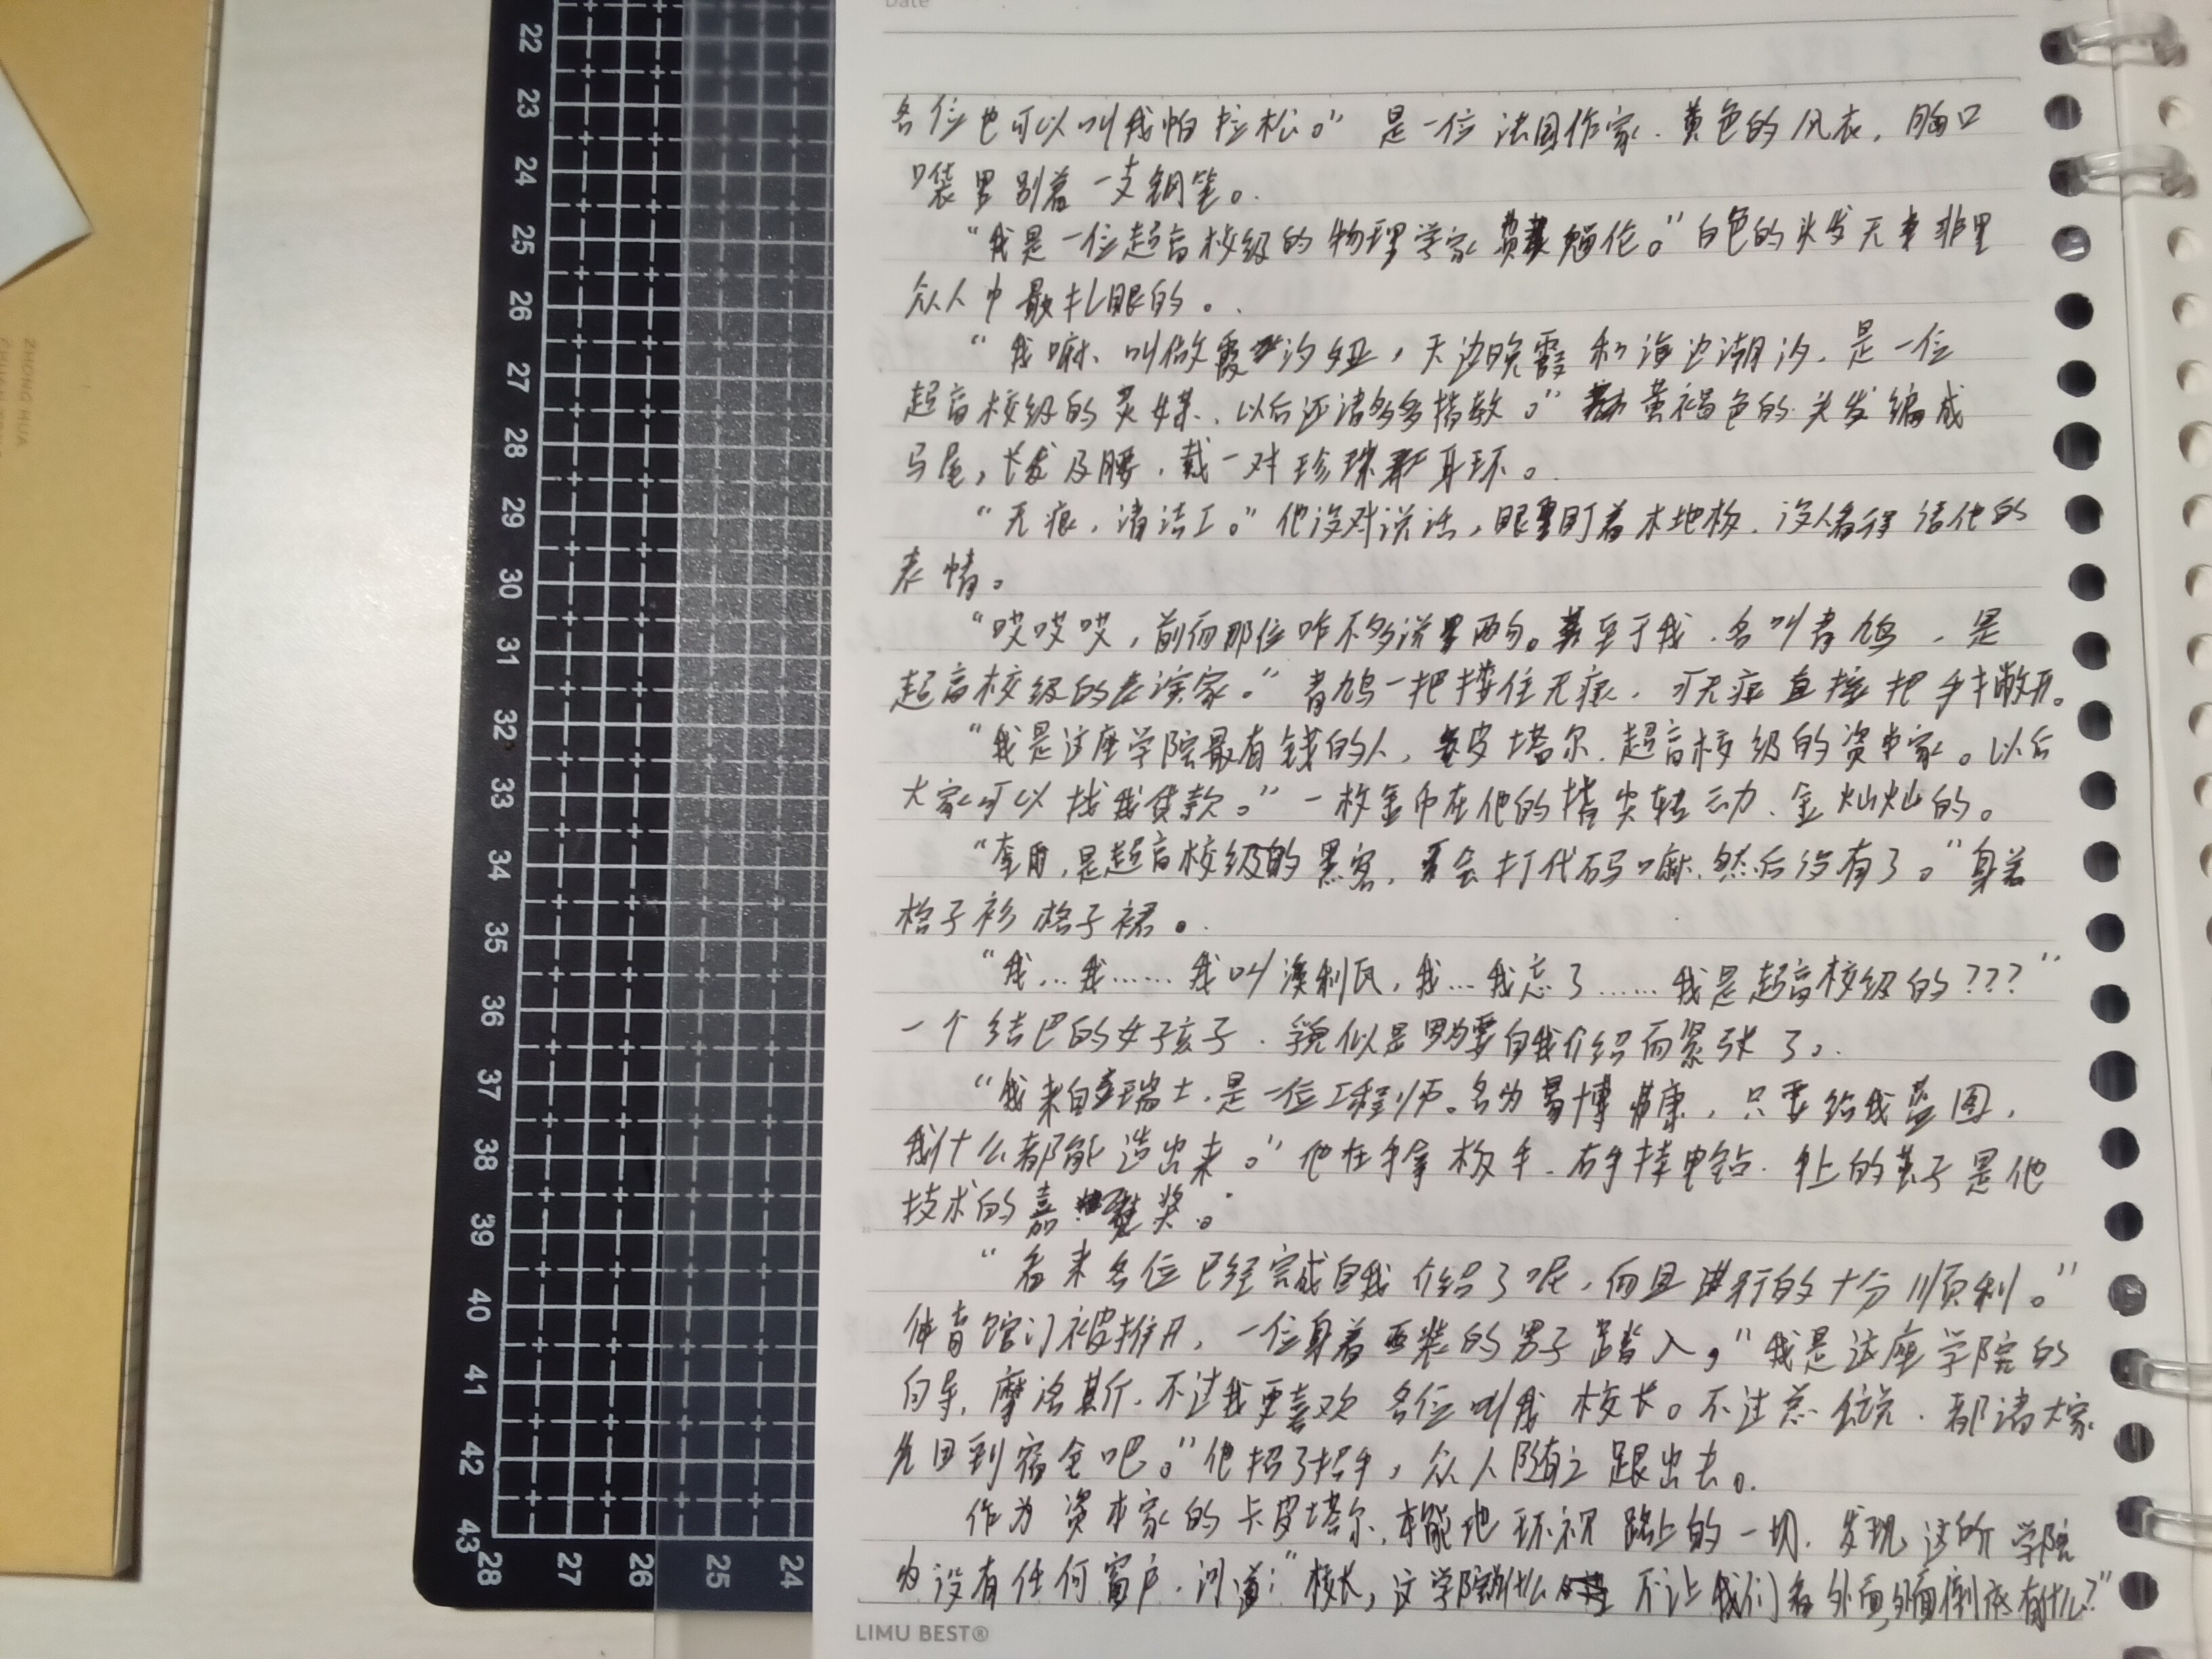 Date
各位也可以叫我帕拉松。”是一位法国作家.黄色的风衣,胸口
口袋里别着一支钢笔。
“我是一位超高校级的物理学家 伦。”白色的头发无非是
众人中最扎眼的。
“我嘛、叫做霞汐娅,天边晚霞和海边潮汐.是一位
超高校级的灵媒、以后还请多多指教。”黄褐色的头发编成
马尾,长发及腰.戴一对珍珠耳环。
“无痕.清洁工。”他没对说话,眼盯着木地板.没人看得清他的
表情。
“哎哎哎,前面那位咋不多说两句。至于我.名叫青鸠,是
超高校级的表演家。”青鸠一把搂住无痕.可无痕直接把手撇开。
“我是这座学院最有钱的人,皮塔尔.超高校级的资本家。以后
大家可以找我贷款。”一枚金币在他的指尖转动、金灿灿的。
“奎雨,是超高校级的黑客,会打代码嘛.然后没有了。”身着
格子衫格子裙。
“我…我……我叫 利瓦,我…我忘了……我是超高校级的???”
一个结巴的女孩子.貌似是因为要自我介绍而紧张了。
“我来自瑞士.是一位工程师。名为 博 康,只要给我蓝图,
我什么都能造出来。”他左手拿板手.右手持电钻.手上的茧子是他
技术的嘉奖。
“看来各位已经完成自我介绍了呢,而且进行的十分顺利。”
体育馆门被推开,一位身着西装的男子踏入,“我是这座学院的
向导,摩洛斯.不过我更喜欢各位叫我校长。不过怎么说.都请大家
先回到宿舍吧。”他招了招手,众人随之跟出去。
作为资本家的卡皮塔尔、本能地环视路上的一切.发现这所学院
为没有任何窗户.问道:“校长,这学院为什么不让我们看外面,外面到底有什么?”
LIMU BEST®
22
23
24
25
26
27
28
29
30
31
32
33
34
35
36
37
38
39
40
41
42
43
28 27 26 25 24
ZHONG HUA